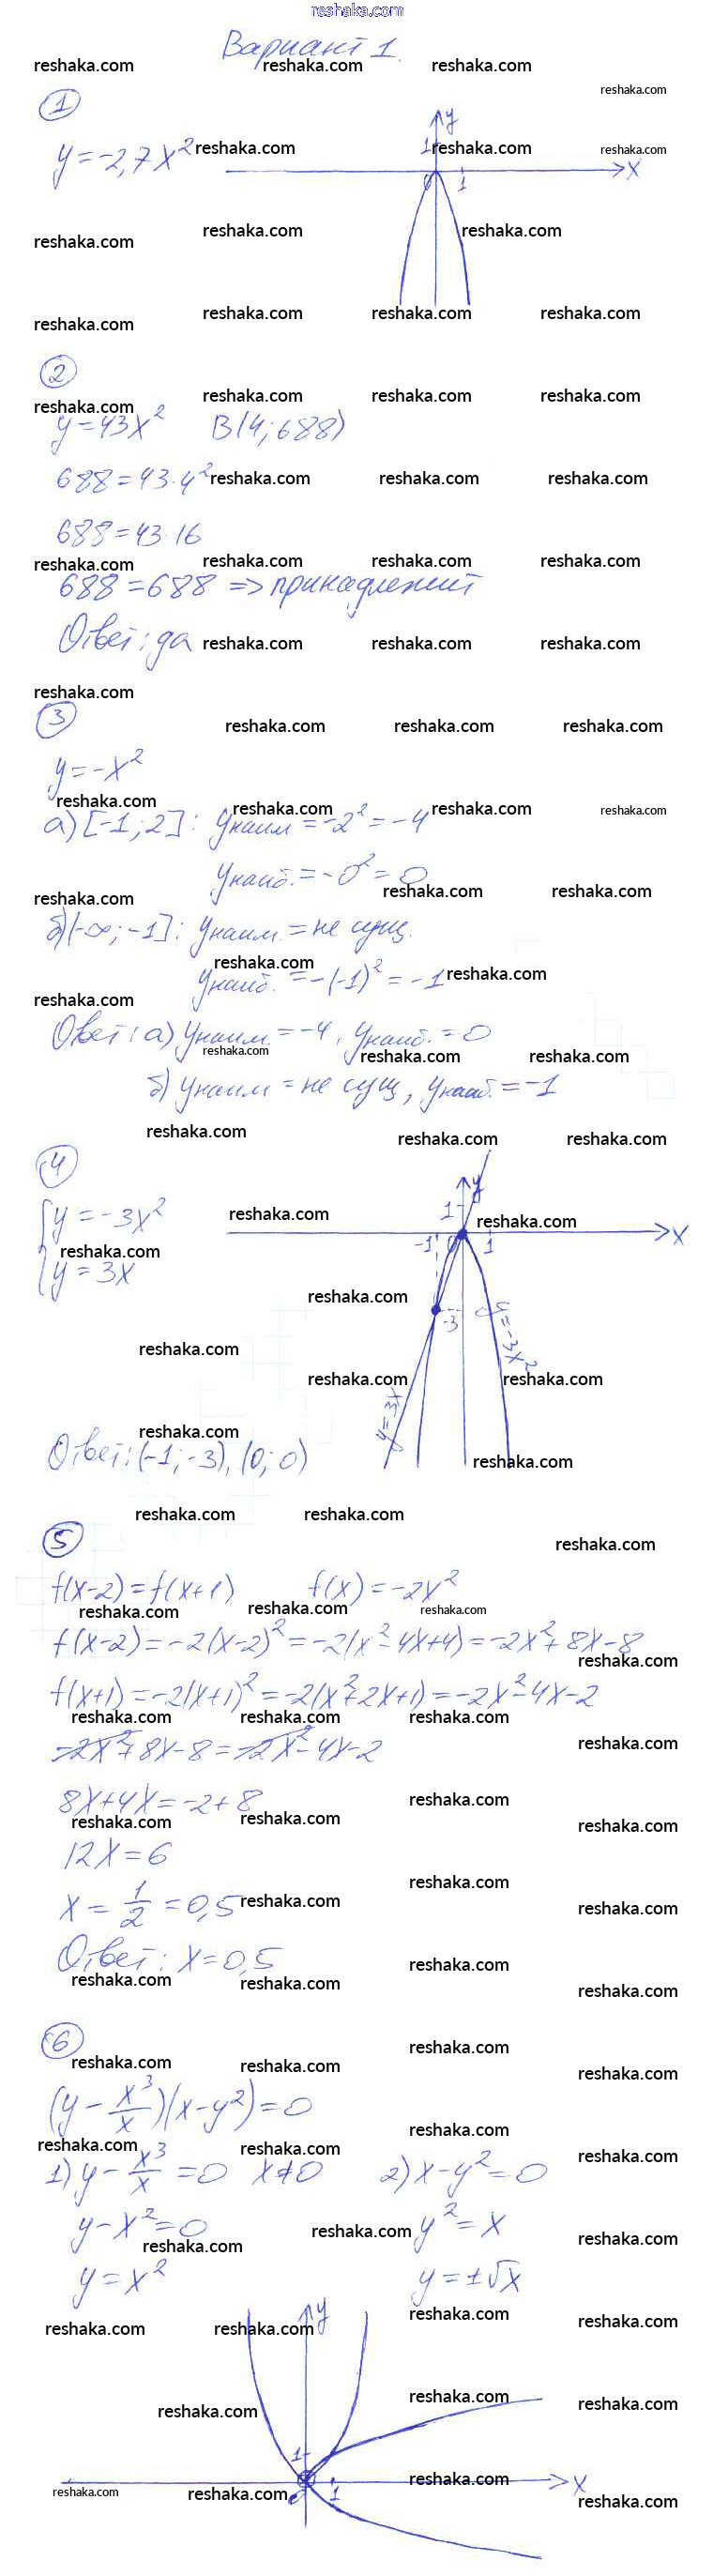 reshaka.com
Вариант 1.
reshaka.com reshaka.com reshaka.com
reshaka.com
1
y = -2,7x² reshaka.com reshaka.com reshaka.com
y
1
0 1 x
reshaka.com reshaka.com reshaka.com
reshaka.com reshaka.com reshaka.com reshaka.com
2
reshaka.com reshaka.com reshaka.com reshaka.com
y = 43x² B(4; 688)
688 = 43·4² reshaka.com reshaka.com reshaka.com
688 = 43·16
reshaka.com reshaka.com reshaka.com reshaka.com
688 = 688 => принадлежит
Ответ: да reshaka.com reshaka.com reshaka.com
reshaka.com
3
reshaka.com reshaka.com reshaka.com
y = -x²
reshaka.com reshaka.com reshaka.com reshaka.com
а) [-1; 2]: yнаим = -2² = -4
yнаиб. = -0² = 0
reshaka.com reshaka.com reshaka.com
б) (-∞; -1]: yнаим. = не сущ.
reshaka.com
yнаиб. = -(-1)² = -1 reshaka.com
reshaka.com
Ответ: а) yнаим. = -4, yнаиб. = 0
reshaka.com reshaka.com reshaka.com
б) yнаим = не сущ, yнаиб. = -1
reshaka.com reshaka.com reshaka.com
4
y = -3x² reshaka.com reshaka.com
reshaka.com
y = 3x
y
1
-1 0 1 x
reshaka.com
-3
y = -3x²
reshaka.com
reshaka.com reshaka.com
y = 3x
reshaka.com
Ответ: (-1; -3), (0; 0) reshaka.com
reshaka.com reshaka.com
5
reshaka.com
f(x-2) = f(x+1) f(x) = -2x²
reshaka.com reshaka.com reshaka.com
f(x-2) = -2(x-2)² = -2(x²-4x+4) = -2x²+8x-8
reshaka.com
f(x+1) = -2(x+1)² = -2(x²+2x+1) = -2x²-4x-2
reshaka.com reshaka.com reshaka.com
-2x²+8x-8 = -2x²-4x-2 reshaka.com
8x+4x = -2+8 reshaka.com
reshaka.com reshaka.com reshaka.com
12x = 6
reshaka.com
x = 1/2 = 0,5 reshaka.com reshaka.com
Ответ: x = 0,5 reshaka.com
reshaka.com reshaka.com reshaka.com
6
reshaka.com
reshaka.com reshaka.com reshaka.com
(y - x³/x)(x-y²) = 0
reshaka.com
reshaka.com reshaka.com reshaka.com
1) y - x³/x = 0 x≠0 2) x-y² = 0
y-x² = 0 y² = x
reshaka.com reshaka.com reshaka.com
y = x² y = ±√x
reshaka.com reshaka.com reshaka.com reshaka.com
y
reshaka.com reshaka.com reshaka.com
1
0 1 x
reshaka.com reshaka.com reshaka.com reshaka.com